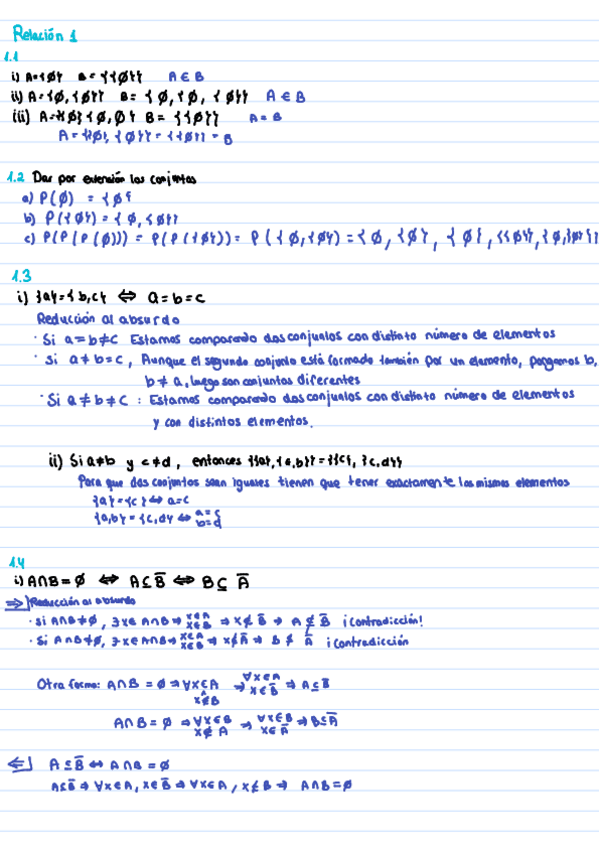 Relación 1
1.1
i) A={Ø} B={{Ø}} A ∈ B
ii) A={Ø,{Ø}} B={Ø,{Ø, {Ø}} A ∈ B
iii) A={{Ø}{Ø,Ø} B={{Ø}} A = B
A={{Ø}, {Ø}} = {{Ø}} = B
1.2 Dar por extensión los conjuntos
a) P(Ø) = {Ø}
b) P({Ø}) = {Ø,{Ø}}
c) P(P(P(Ø))) = P(P({Ø})) = P({Ø,{Ø}) = {Ø, {Ø}, {Ø}, {{Ø}}, {Ø,{Ø}}}
1.3
i) {a}={b,c} ⇔ a=b=c
Reducción al absurdo
· Si a=b≠c Estamos comparando dos conjuntos con distinto número de elementos
· Si a≠b=c, Aunque el segundo conjunto está formado también por un elemento, pongamos b,
b≠a, luego son conjuntos diferentes
· Si a≠b≠c : Estamos comparando dos conjuntos con distinto número de elementos
y con distintos elementos.
ii) Si a≠b y c≠d, entonces {{a},{a,b}}={{c},{c,d}}
Para que dos conjuntos sean iguales tienen que tener exactamente los mismos elementos
{a}={c} ⇔ a=c
{a,b}={c,d} ⇔ a=c
b=d
1.4
i) A∩B=Ø ⇔ A⊆B̅ ⇔ B⊆A̅
⇒] Reducción al absurdo
· Si A∩B≠Ø, ∃x∈A∩B ⇒ x∈A x∈B ⇒ x∉B̅ ⇒ A⊈B̅ ¡contradicción!
· Si A∩B≠Ø, ∃x∈A∩B ⇒ x∈A x∈B ⇒ x∉A̅ ⇒ B⊈A̅ ¡contradicción
Otra forma: A∩B=Ø ⇒ ∀x∈A ∧ x∉B ⇒ ∀x∈A x∈B̅ ⇒ A⊆B̅
A∩B=Ø ⇒ ∀x∈B x∉A ⇒ ∀x∈B x∈A̅ ⇒ B⊆A̅
⇐] A⊆B̅ ⇔ A∩B=Ø
A⊆B̅ ⇒ ∀x∈A, x∈B̅ ⇒ ∀x∈A, x∉B ⇒ A∩B=Ø